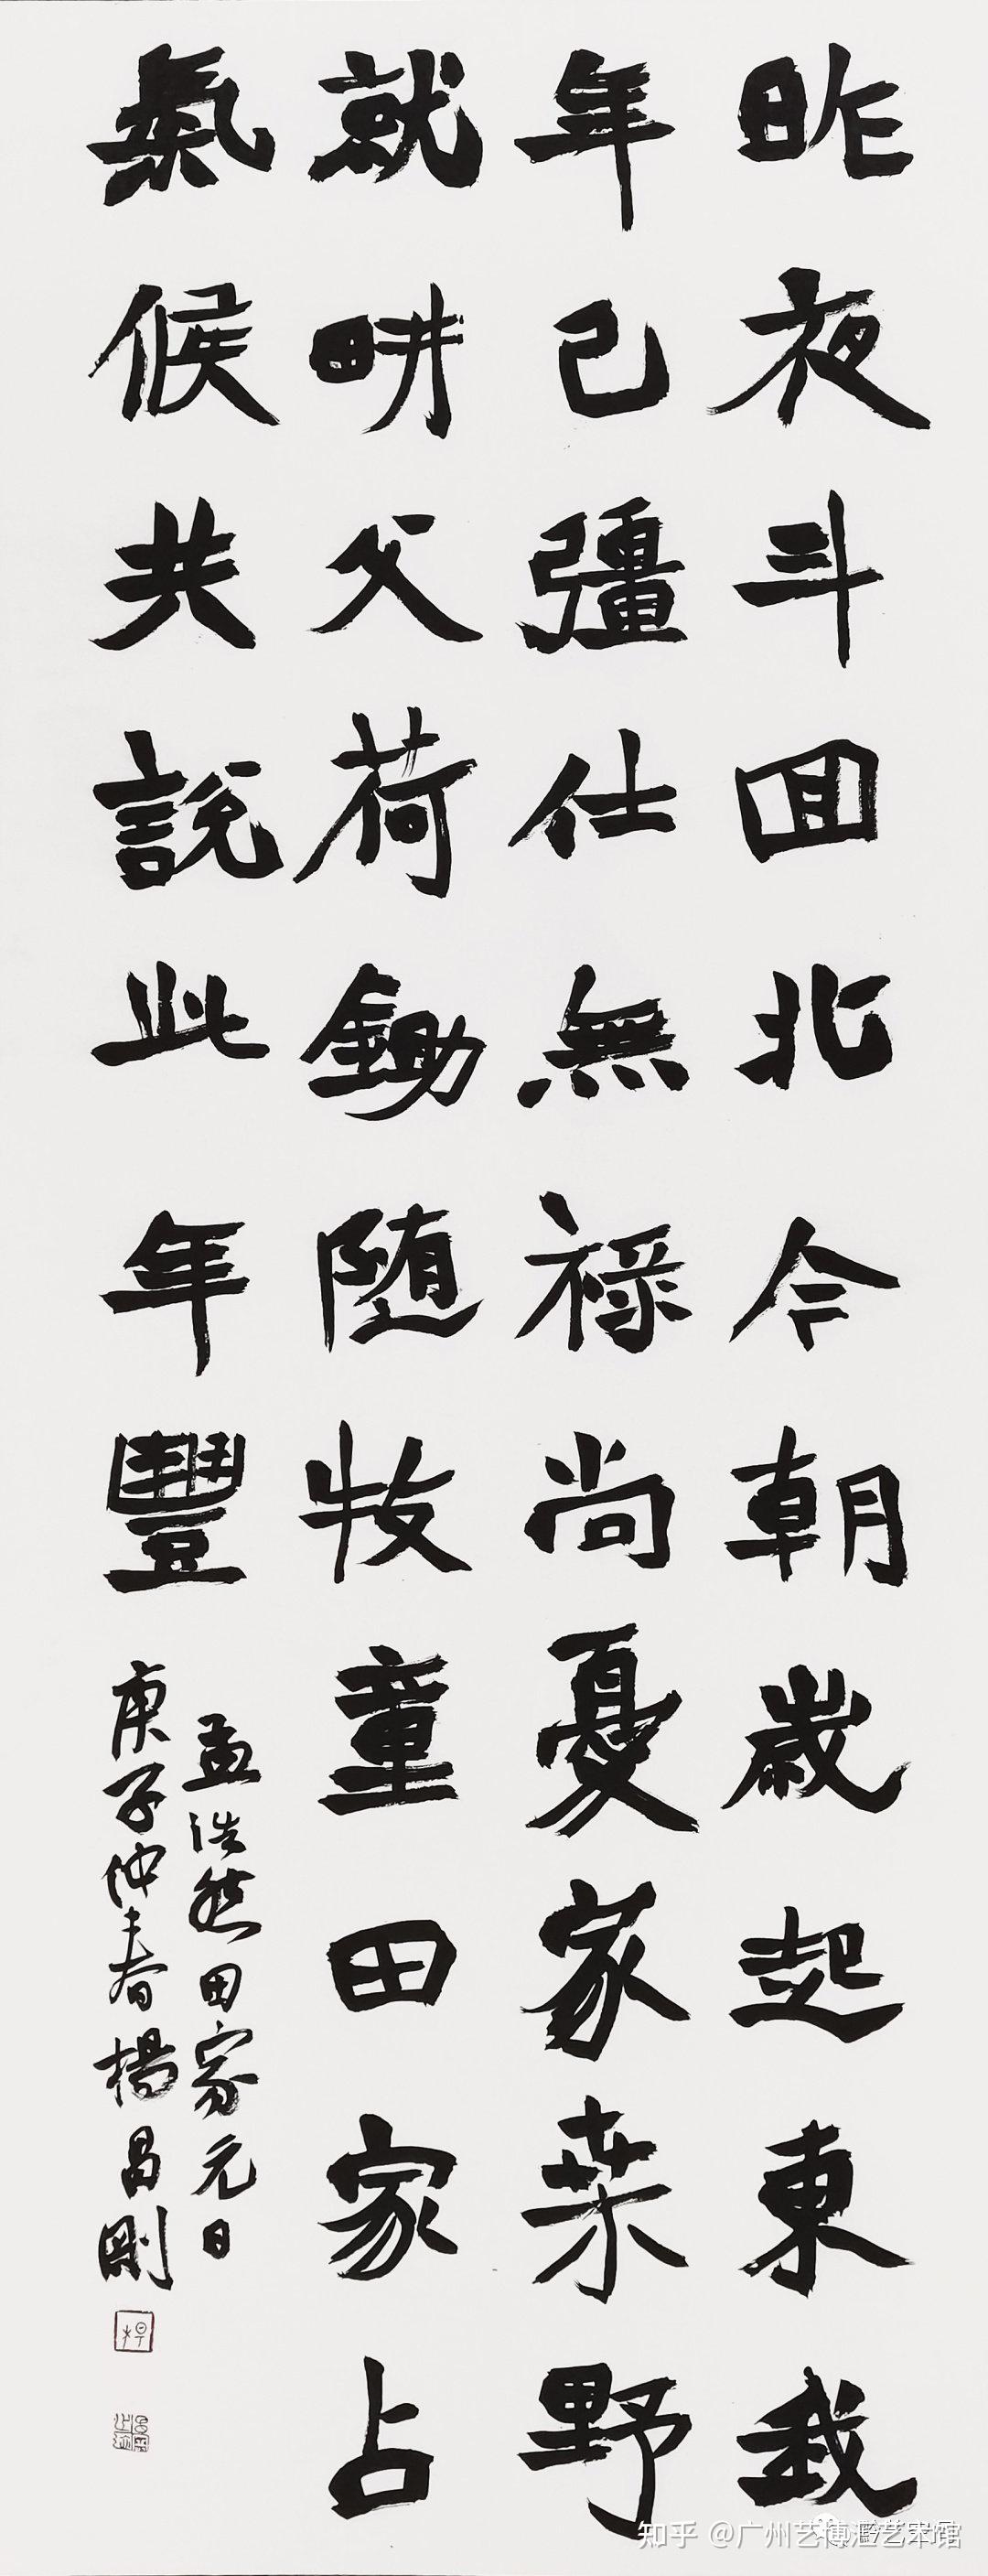 昨夜斗回北今朝歲起東我
年已彊仕無祿尚憂家桒野
就畊父荷鋤随牧童田家占
氣候共說此年豐
孟浩然田家元日
庚子仲春楊昌剛
知乎 @广州艺博艺术馆